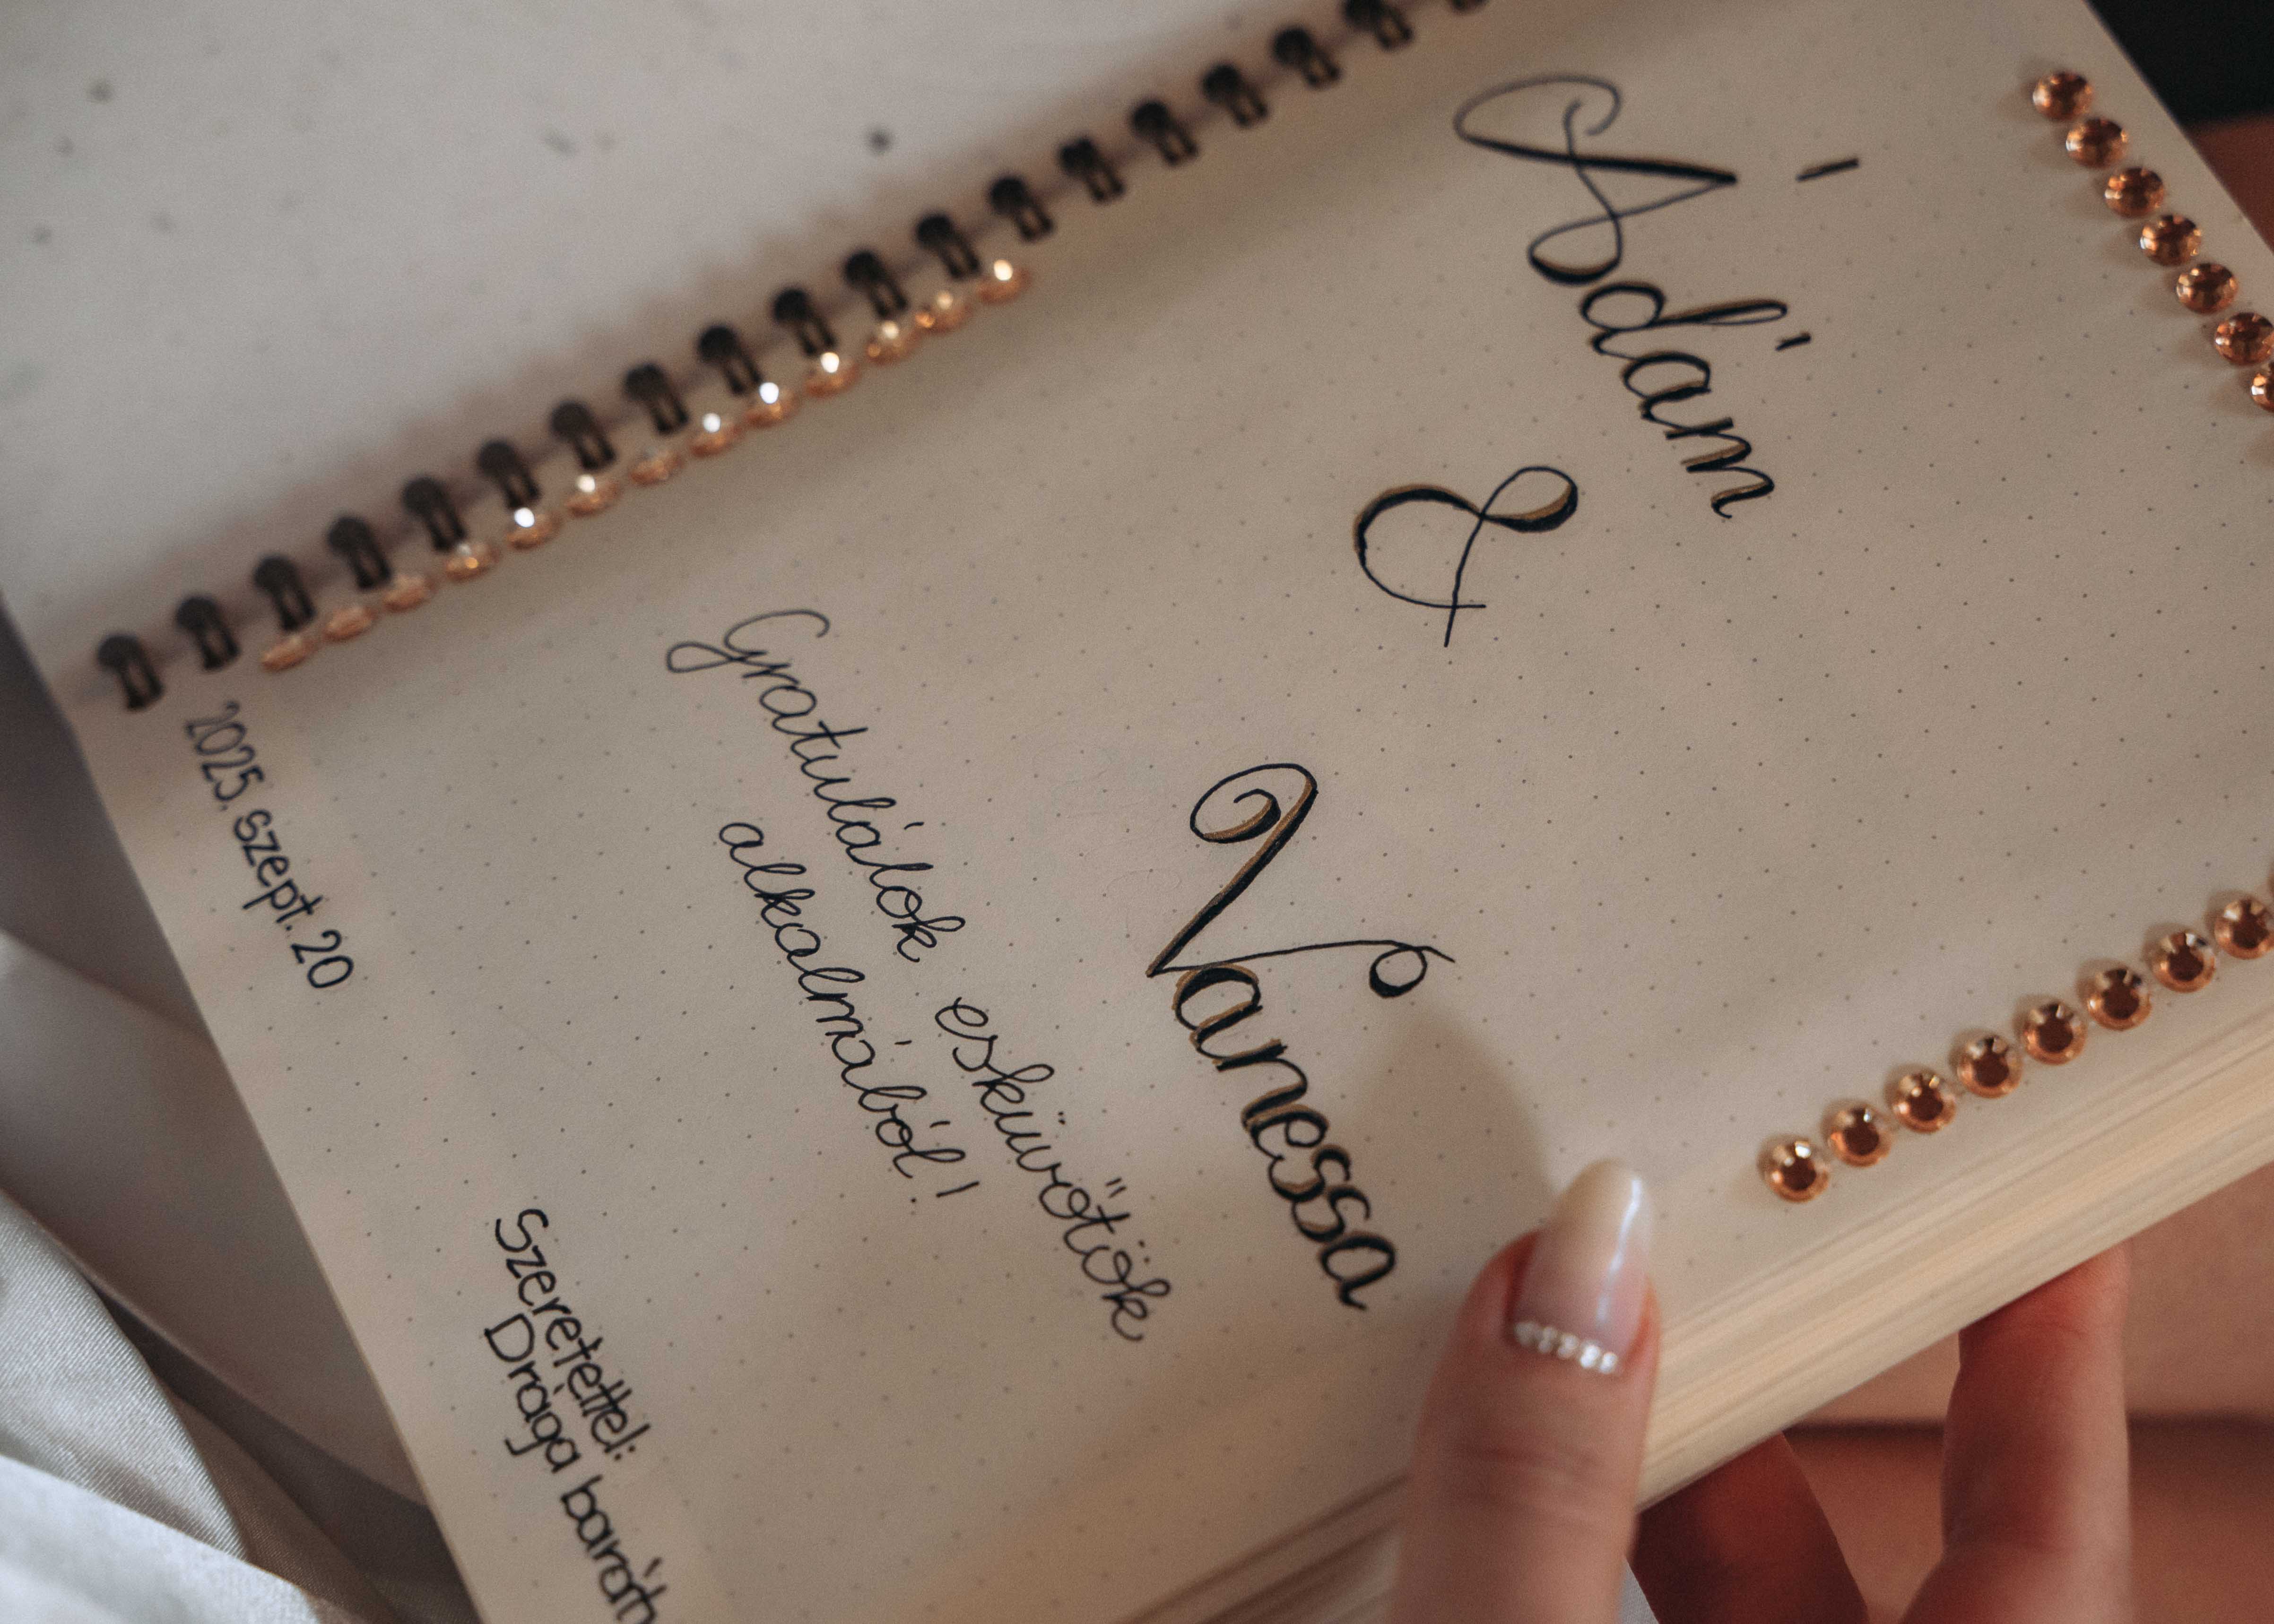 Ádám
&
Vanessa
Gratulálok esküvőtök
alkalmából!
2025. szept. 20
Szeretettel:
Drága